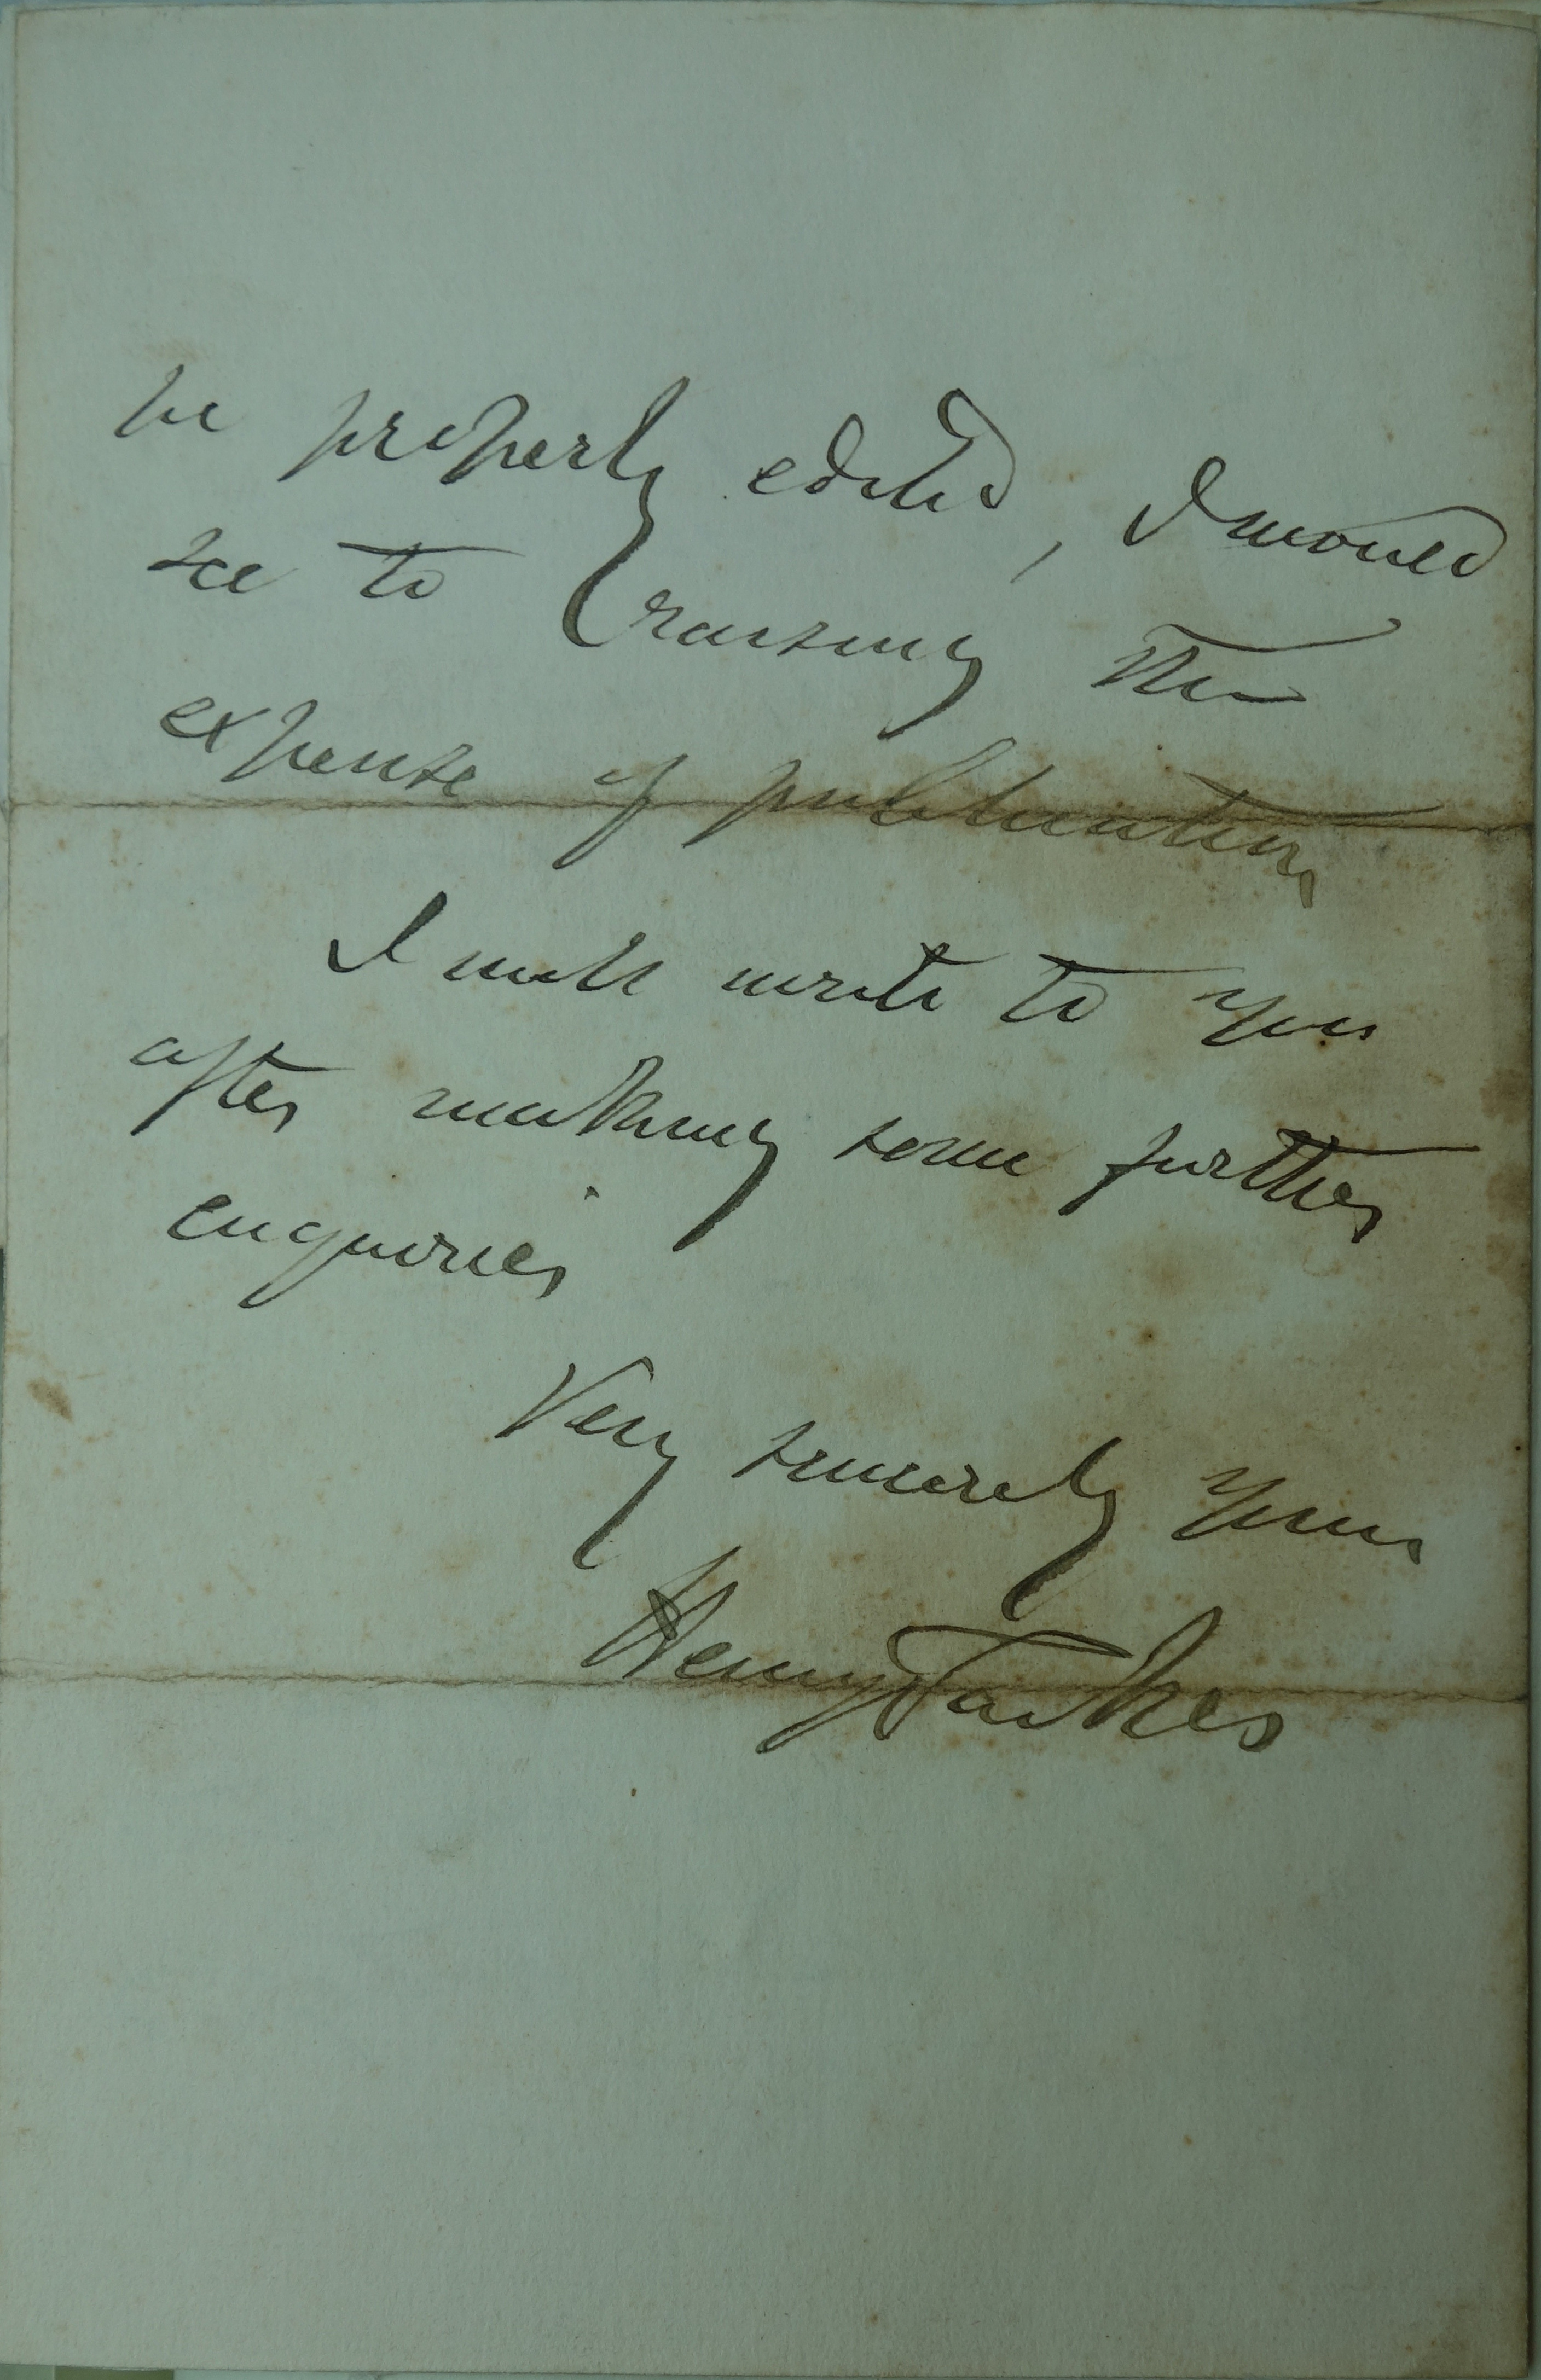 be properly edited, I would
see to raising the
expense of publication
I will write to you
after making some further
enquiries
Very sincerely yours
Henry Parkes